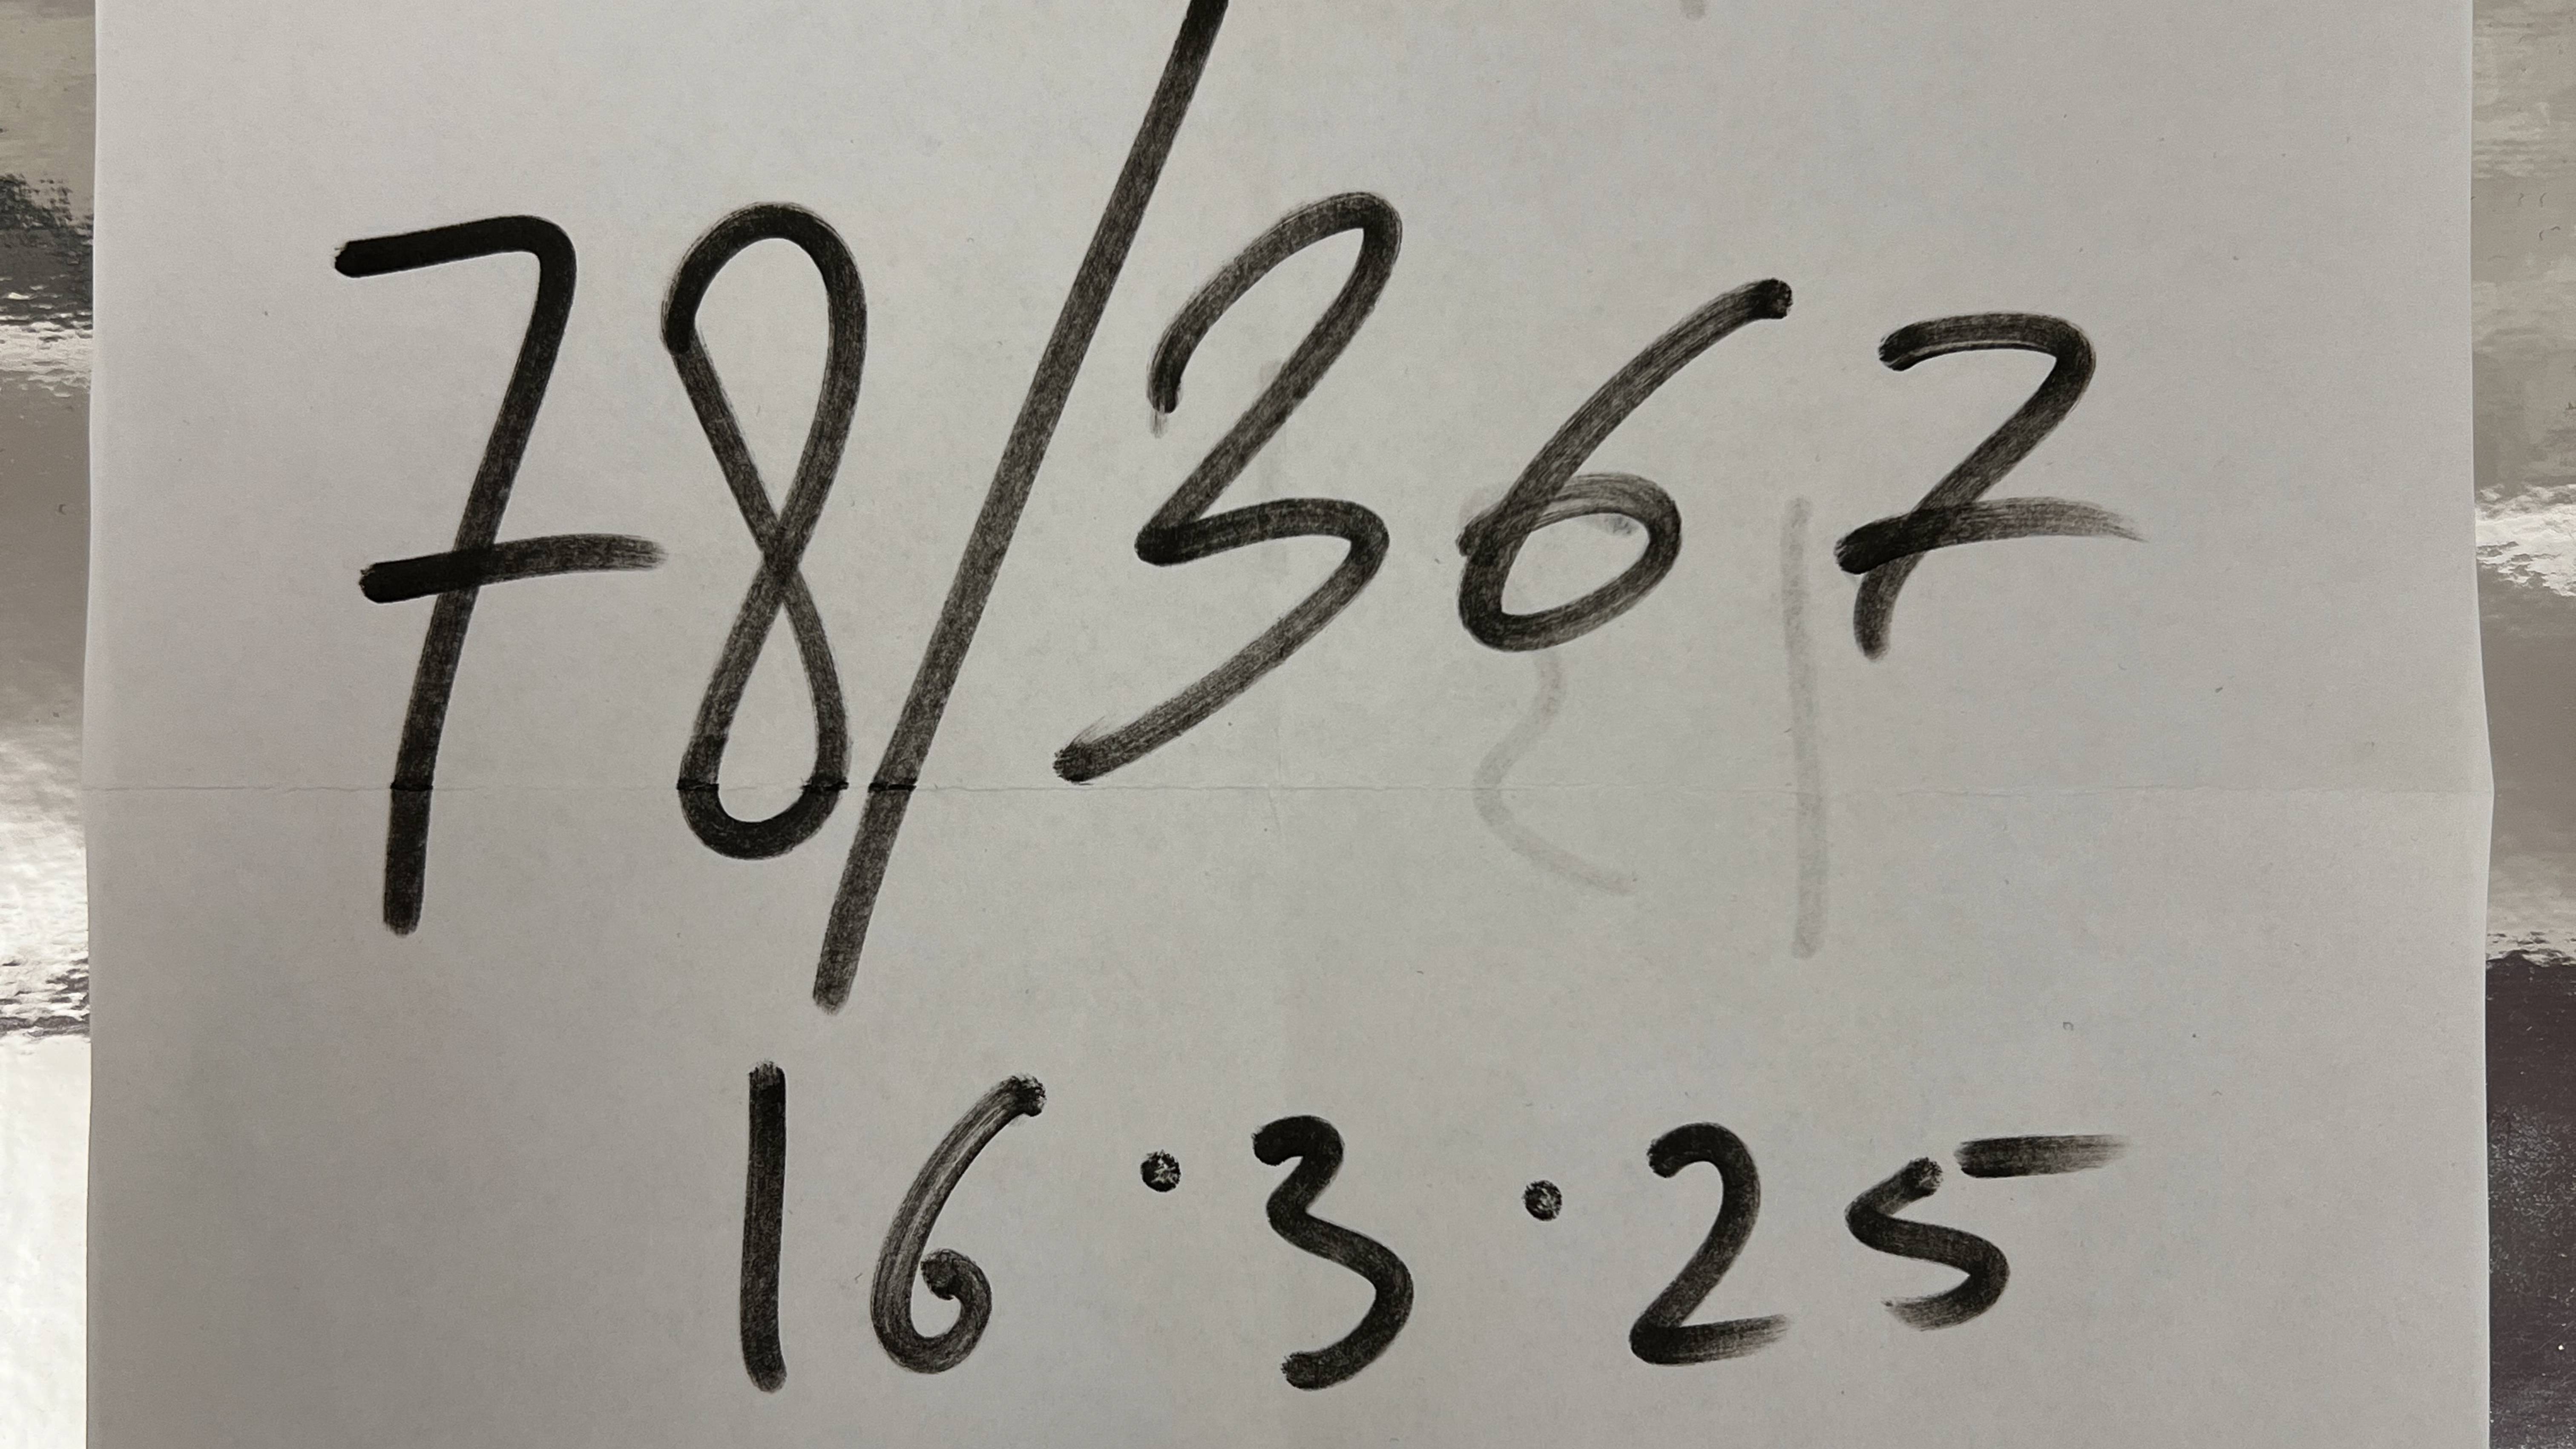 78/367
16.3.25